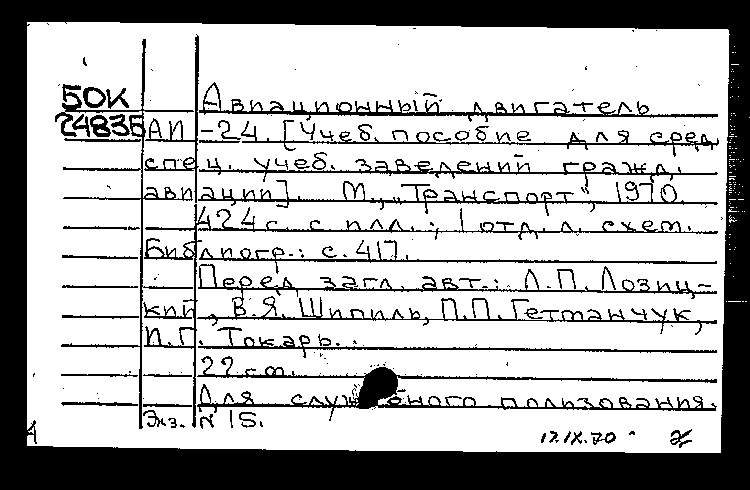 БОК Авиационный двигатель
24835 АИ-24. [Учеб. пособие для сред.
спец. учеб. заведений гражд.
авиации]. М., „Транспорт", 1970.
424 с. с илл.; 1 отд. л. схем.
Библиогр.: с. 417.
Перед загл. авт.: Л.П. Лозиц-
кий, В.Я. Шипиль, П.П. Гетманчук,
И.Г. Токарь.
22 см.
Для служебного пользования.
Экз. N 15.
17.IX.70